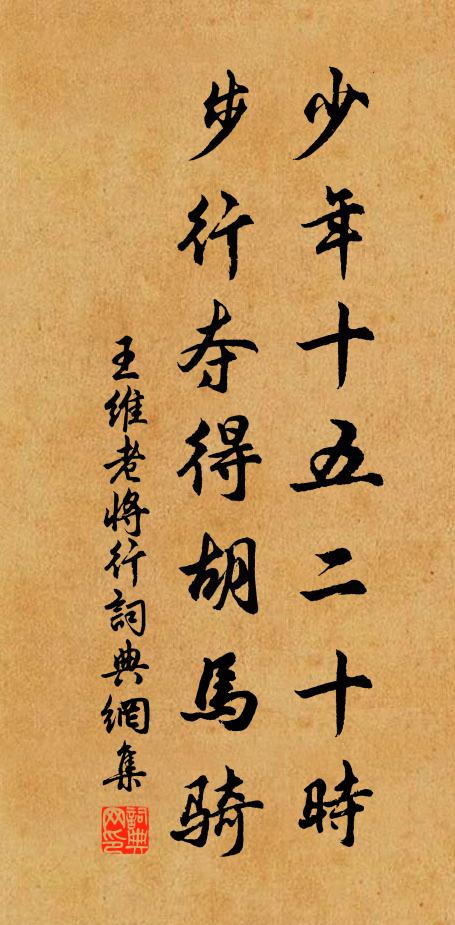 少年十五二十時
步行夺得胡馬騎
王維老將行詞典網集
詞典
网印